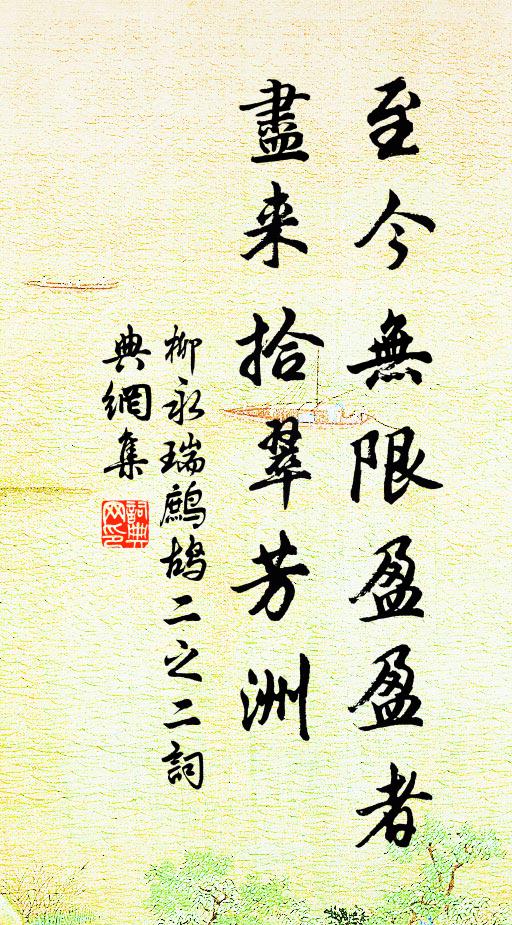 至今無限盈盈者
盡来拾翠芳洲
柳永瑞鷓鴣二之二詞
典網集
詞典網印